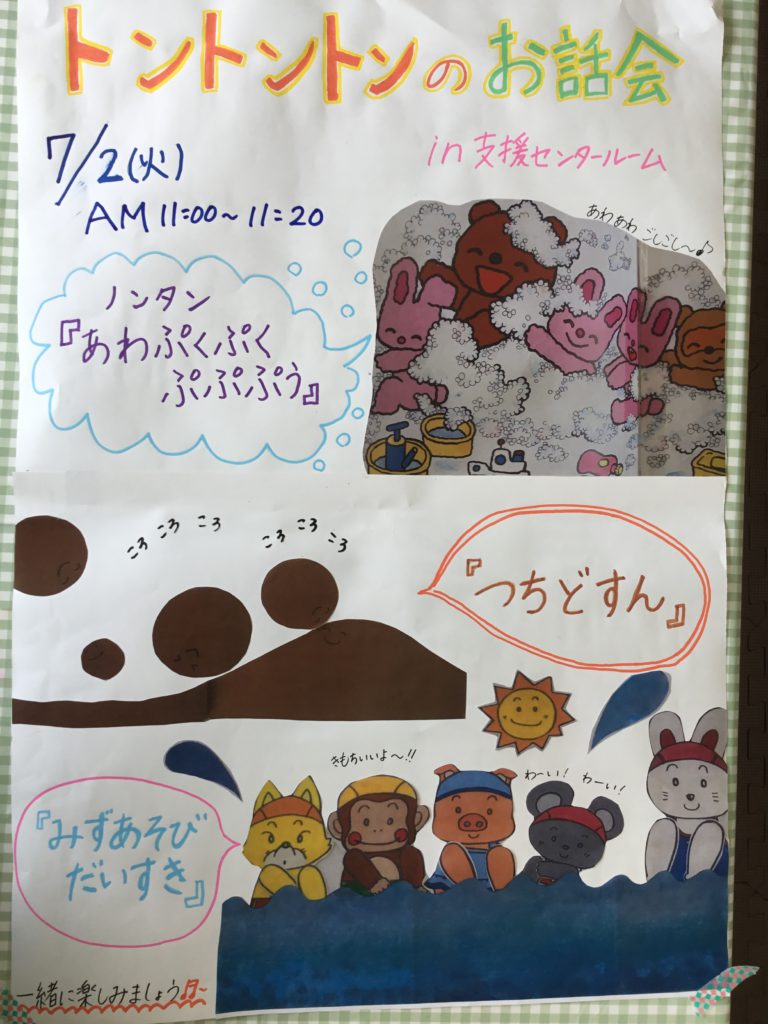 トントントンのお話会
7/2(火)
in 支援センタールーム
AM 11:00〜11:20
あわあわ ごしごし〜♪
ノンタン
『あわぷくぷく
ぷぷぷぅ』
ころ ころ ころ
ころ ころ ころ
『つちどすん』
きもちいいよ〜!!
わーい! わーい!
『みずあそび
だいすき』
一緒に楽しみましょう♬〜